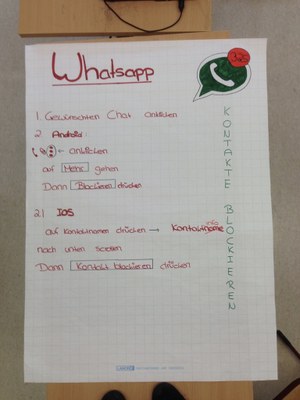 Whatsapp
325
1. Gewünschten Chat anklicken
2. Android:
← anklicken
auf Menü gehen
Dann Blockieren drücken
2.) IOS
auf Kontaktnamen drücken → Kontaktname
info
nach unten scrollen
Dann Kontakt blockieren drücken
KONTAKTE BLOCKIEREN